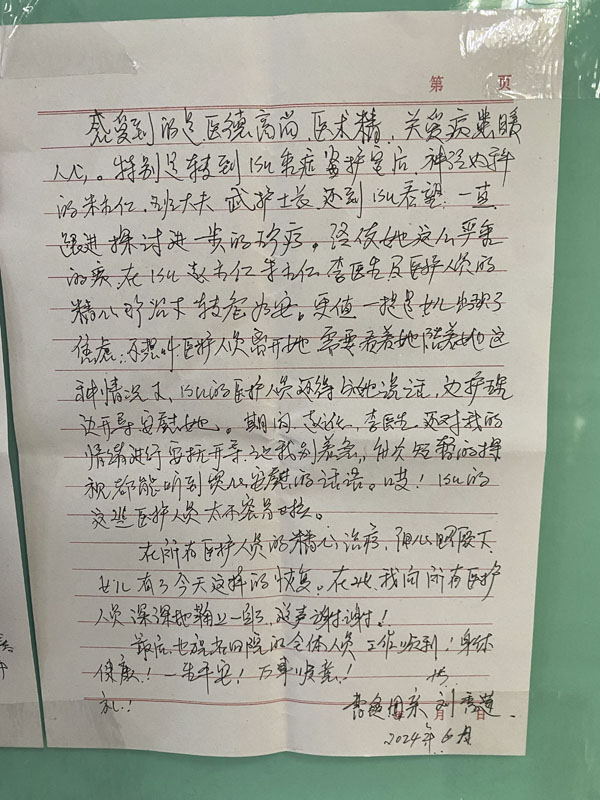 第 页
感受到的是医德高尚,医术精,关爱病患暖
人心。特别是转到ICU重症监护室后,神经内科
的朱主任,大夫 武护士长 还到ICU看望,一直
跟进探讨进一步的诊疗。使她这么严重
的病,在ICU赵主任 李主任 李医生及医护人员的
精心 下转危为安。更值一提是女儿出现了
焦虑,不想叫医护人员离开她 需要看着她陪着她,这
种情况下,ICU的医护人员还得与她说话,边护理
边开导安慰她。期间,赵 ,李医生,还对我的
情绪进行安抚开导,让我别着急,每次短暂的探
视都能听到 安慰的话语。哎!ICU的
这些医护人员太不容易啦。
在所有医护人员的精心治疗,用心照顾下
女儿有了今天这样的恢复。在此,我向所有医护
人员深深地鞠上一躬,说声谢谢谢!
最后,也祝 院的全体人员 工作顺利!身体
健康!一生平安!万事顺意!
礼!
月 日
母亲 刘
2024年6月